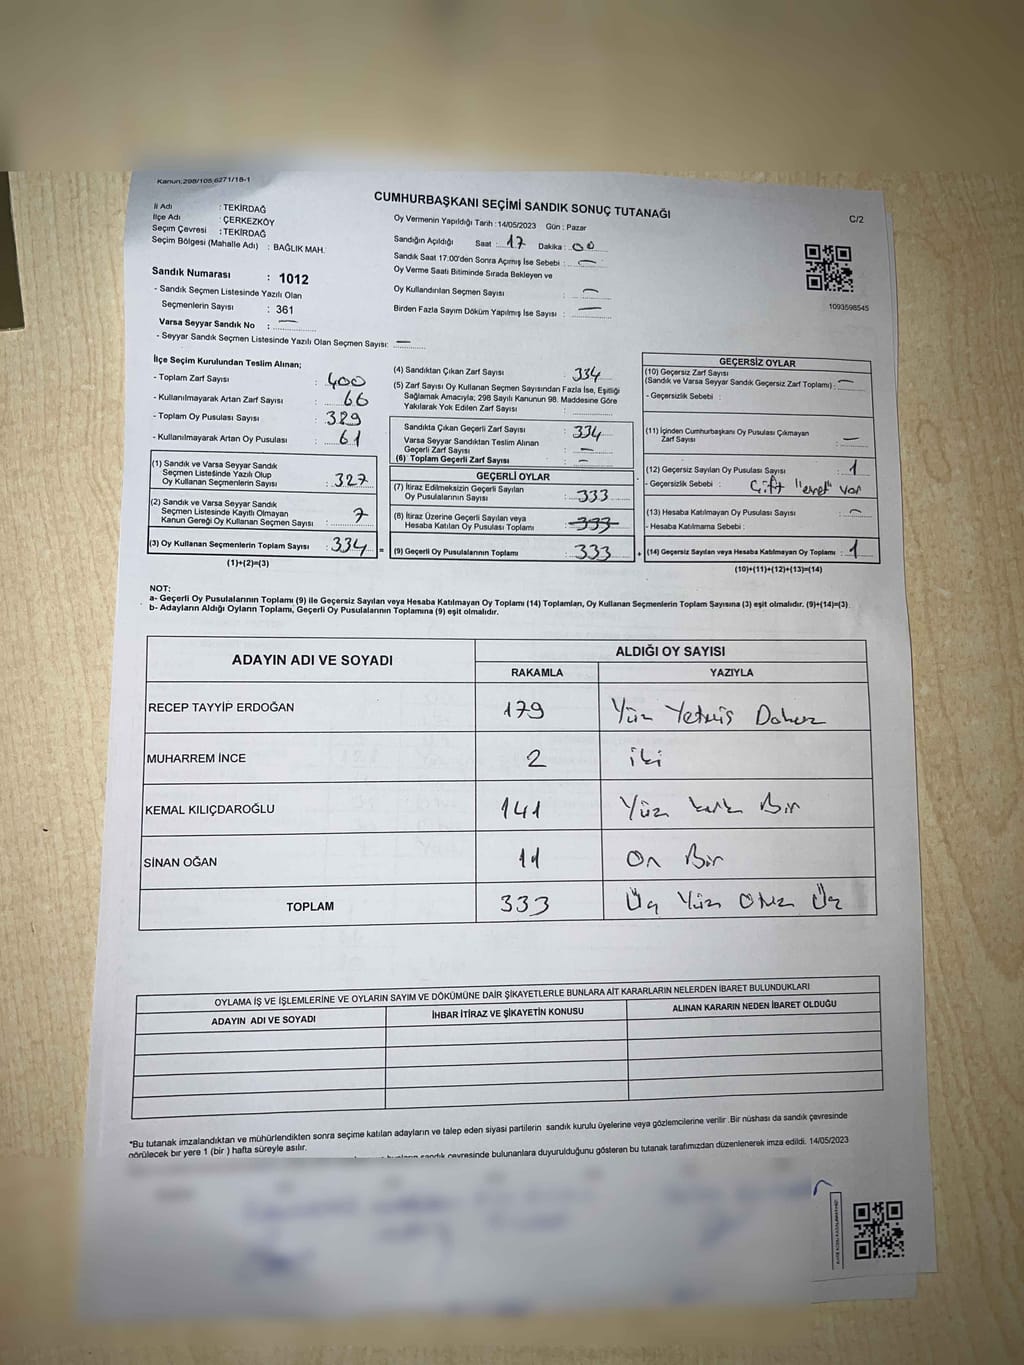 Kanun:298/105 6271/18-1
CUMHURBAŞKANI SEÇİMİ SANDIK SONUÇ TUTANAĞI
C/2
İl Adı : TEKİRDAĞ
İlçe Adı : ÇERKEZKÖY
Seçim Çevresi : TEKİRDAĞ
Seçim Bölgesi (Mahalle Adı) : BAĞLIK MAH.
Sandık Numarası : 1012
- Sandık Seçmen Listesinde Yazılı Olan
Seçmenlerin Sayısı : 361
Varsa Seyyar Sandık No : —
- Seyyar Sandık Seçmen Listesinde Yazılı Olan Seçmen Sayısı: —
Oy Vermenin Yapıldığı Tarih : 14/05/2023 Gün : Pazar
Sandığın Açıldığı Saat : 17 Dakika : 00
Sandık Saat 17:00'den Sonra Açımış İse Sebebi : —
Oy Verme Saati Bitiminde Sırada Bekleyen ve
Oy Kullandırılan Seçmen Sayısı : —
Birden Fazla Sayım Döküm Yapılmış İse Sayısı : —
1093598545
İlçe Seçim Kurulundan Teslim Alınan;
- Toplam Zarf Sayısı : 400
- Kullanılmayarak Artan Zarf Sayısı : 66
- Toplam Oy Pusulası Sayısı : 389
- Kullanılmayarak Artan Oy Pusulası : 61
(1) Sandık ve Varsa Seyyar Sandık
Seçmen Listesinde Yazılı Olup
Oy Kullanan Seçmenlerin Sayısı : 327
(2) Sandık ve Varsa Seyyar Sandık
Seçmen Listesinde Kayıtlı Olmayan
Kanun Gereği Oy Kullanan Seçmen Sayısı : 7
(3) Oy Kullanan Seçmenlerin Toplam Sayısı : 334 =
(1)+(2)=(3)
(4) Sandıktan Çıkan Zarf Sayısı : 334
(5) Zarf Sayısı Oy Kullanan Seçmen Sayısından Fazla İse, Eşitliği
Sağlamak Amacıyla; 298 Sayılı Kanunun 98. Maddesine Göre
Yakılarak Yok Edilen Zarf Sayısı :
Sandıkta Çıkan Geçerli Zarf Sayısı : 334
Varsa Seyyar Sandıktan Teslim Alınan
Geçerli Zarf Sayısı : —
(6) Toplam Geçerli Zarf Sayısı : —
GEÇERLİ OYLAR
(7) İtiraz Edilmeksizin Geçerli Sayılan
Oy Pusulalarının Sayısı : 333
(8) İtiraz Üzerine Geçerli Sayılan veya
Hesaba Katılan Oy Pusulası Toplamı : 333
(9) Geçerli Oy Pusulalarının Toplamı : 333 +
GEÇERSİZ OYLAR
(10) Geçersiz Zarf Sayısı
(Sandık ve Varsa Seyyar Sandık Geçersiz Zarf Toplamı) : —
- Geçersizlik Sebebi :
(11) İçinden Cumhurbaşkanı Oy Pusulası Çıkmayan
Zarf Sayısı : —
(12) Geçersiz Sayılan Oy Pusulası Sayısı : 1
- Geçersizlik Sebebi : Çift "evet" var
(13) Hesaba Katılmayan Oy Pusulası Sayısı : —
- Hesaba Katılmama Sebebi :
(14) Geçersiz Sayılan veya Hesaba Katılmayan Oy Toplamı : 1
(10)+(11)+(12)+(13)=(14)
NOT:
a- Geçerli Oy Pusulalarının Toplamı (9) ile Geçersiz Sayılan veya Hesaba Katılmayan Oy Toplamı (14) Toplamları, Oy Kullanan Seçmenlerin Toplam Sayısına (3) eşit olmalıdır. (9)+(14)=(3).
b- Adayların Aldığı Oyların Toplamı, Geçerli Oy Pusulalarının Toplamına (9) eşit olmalıdır.
ADAYIN ADI VE SOYADI
ALDIĞI OY SAYISI
RAKAMLA YAZIYLA
RECEP TAYYİP ERDOĞAN 179 Yüz Yetmiş Dokuz
MUHARREM İNCE 2 iki
KEMAL KILIÇDAROĞLU 141 Yüz kırk Bir
SİNAN OĞAN 11 On Bir
TOPLAM 333 Üç Yüz Otuz Üç
OYLAMA İŞ VE İŞLEMLERİNE VE OYLARIN SAYIM VE DÖKÜMÜNE DAİR ŞİKAYETLERLE BUNLARA AİT KARARLARIN NELERDEN İBARET BULUNDUKLARI
ADAYIN ADI VE SOYADI İHBAR İTİRAZ VE ŞİKAYETİN KONUSU ALINAN KARARIN NEDEN İBARET OLDUĞU
*Bu tutanak imzalandıktan ve mühürlendikten sonra seçime katılan adayların ve talep eden siyasi partilerin sandık kurulu üyelerine veya gözlemcilerine verilir .Bir nüshası da sandık çevresinde
görülecek bir yere 1 (bir ) hafta süreyle asılır.
sandık çevresinde bulunanlara duyurulduğunu gösteren bu tutanak tarafımızdan düzenlenerek imza edildi. 14/05/2023